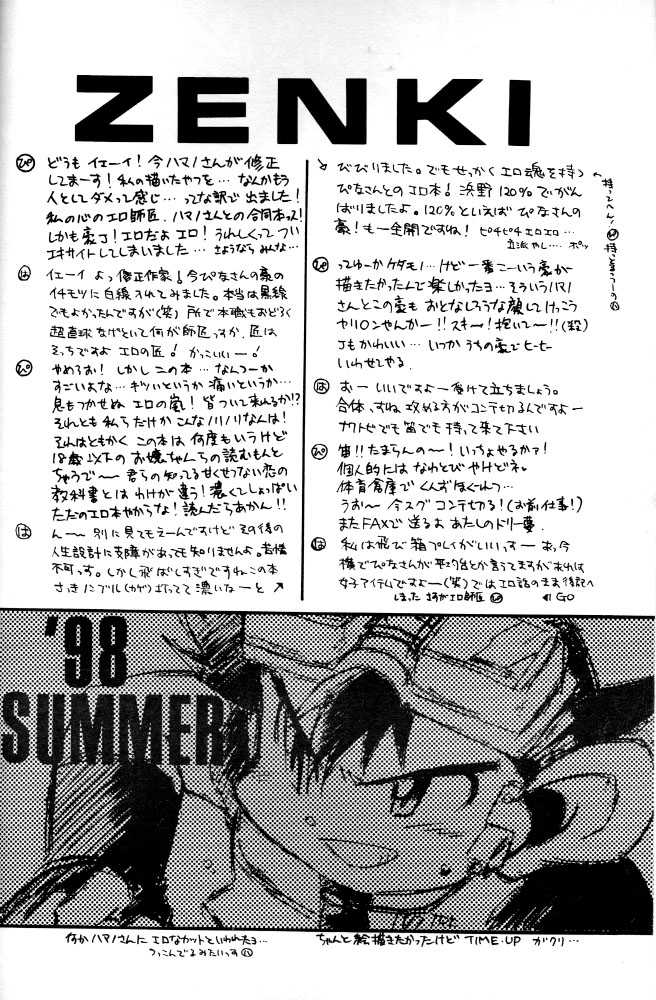 ZENKI
ぴ どうも イェーイ！今ハマノさんが修正
してまーす！私の描いたやつを… なんかもう
人としてダメって感じ… ってな訳で出ました！
私の心のエロ師匠、ハマノさんとの合同本って！
しかも豪ｼﾞ！エロだよ エロ！うれしくってつい
エキサイトしてしまいました… さようなら みんな…
は イェーイ よっ修正作家！今ぴなさんの豪の
イチモツに白線入れてみました。本当は黒線
でもよかったんですが(笑) 所で本職もおどろく
超直球なげといて何が師匠っすか、匠は
そっちですよ エロの匠！ かっこいいー！
ぴ やめろお！しかし この本 …なんつーか
すごいよな… キツいというか 痛いというか…
息もつかせぬ エロの嵐！皆ついて来れるか!?
それとも 私らだけか こんなノリノリなんは！
それはともかく この本は 何度もいうけど
18歳以下の お嬢ちゃんらの読むもんと
ちゃうで〜 君らの知ってる甘くせつない恋の
教科書とは わけが違う！濃くてしょっぱい
ただのエロ本やからな！読んだらあかん!!
は ん〜 別に見てもえーんですけど その後の
人生設計に支障があっても知りませんよ。苦情
不可っす。しかし飛ばしすぎですねこの本
さっき ノーブル(カゲ)打ってて 濃いなーと ↗
↘ びびりました。でもせっかく エロ魂を持つ
ぴなさんとのエロ本！浜野120%でがん
ばりましたよ。120%といえば ぴなさんの
豪！も一全開ですね！ ピチピチエロエロ…
立派やし… ポッ
持ってへん！
ぴ ってゆーか ケダモノ…けど一番こーいう豪が
描きたかったんで楽しかったヨ…そういうハマノ
さんとこの豪も おとなしそうな顔してけっこう
ヤリ○ンやんかー!! スキー！抱いてー!!(殺)
Jもかわいい… いつか うちの豪でヒーヒー
いわせてやる.
は おー いいですよー 受けて立ちましょう。
合体、すね 攻める方がコンテ切るんですよー
カクトせでも 笛でも 持って来て下さい
ぴ 笛!! たまらんの〜！いっちょやるかァ！
個人的には なわとびやけどネ。
体育倉庫で くんずほぐれつ…
うお〜 今スグ コンテ切る！(お前仕事！)
またFAXで送るよ あたしのドリー夢.
は 私は飛び箱プレイがいいっすー あっ、今
横でぴなさんが平均台とか言ってますが あれは
女子アイテムですよー(笑) では エロ話のまま後記へ
しまった さすがエロ師匠 ぴ GO
'98
SUMMER
何かハマノさんに エロなカットと いわれたョ…
つっこんでるみたいっす は
ちゃんと絵描きたかったけど TIME・UP ガクリ…